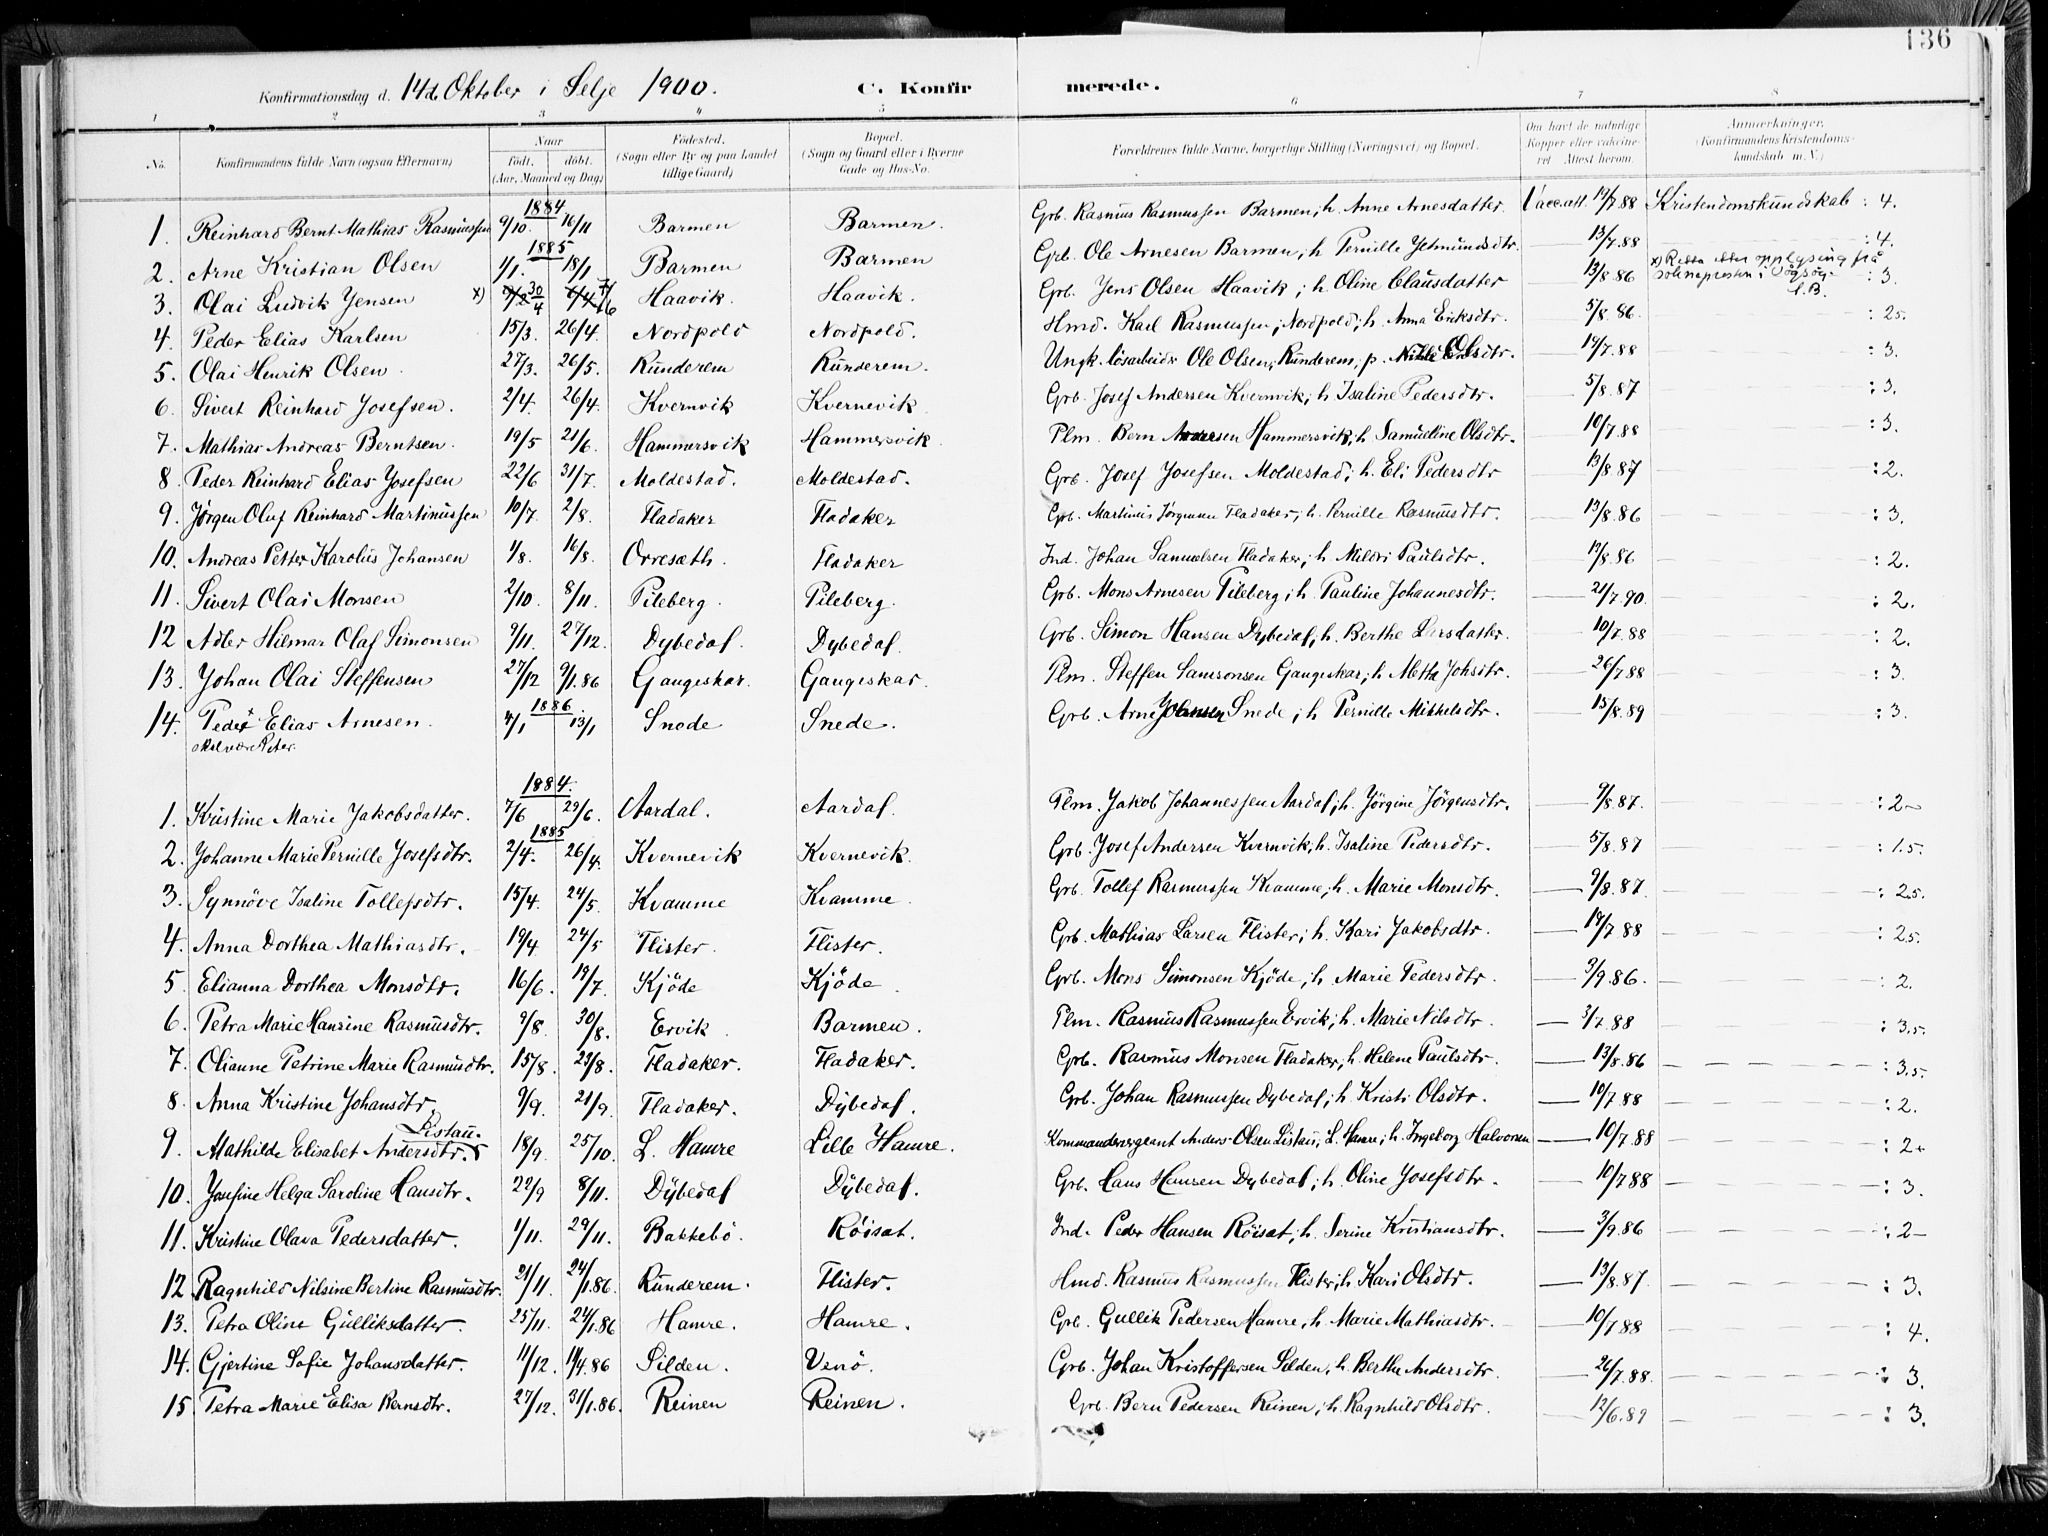 136
Konfirmationsdag d. 14de Oktober i Selje 1900. C. Konfirmerede.
1 2 3 4 5 6 7 8
No. Konfirmandens fulde Navn (ogsaa Efternavn) Naar født. døbt. (Aar, Maaned og Dag) Fødested. (Sogn eller By og paa Landet tillige Gaard) Bopæl. (Sogn og Gaard eller i Byerne Gade og Hus-No. Forældrenes fulde Navne, borgerlige Stilling (Næringsvei) og Bopæl. Om havt de naturlige Kopper eller vaccineret. Attest herom. Anmærkninger. (Konfirmandens Kristendomskundskab m. V.)
1884
1. Reinhard Bernt Mathias Rasmussen 9/10. 16/11 Barmen Barmen. Grb. Rasmus Rasmussen Barmen; h. Anne Arnesdatter. Vacc.att. 19/7.88 Kristendomskundskab : 4.
1885
2. Arne Kristian Olsen 1/1. 18/1 Barmen Barmen Grb. Ole Arnesen Barmen; h Pernille Yetmundsdtr. — 13/7.88 : 4.
x) Retta etter opplysing frå soknepresten i Vågsøy. S.B.
3. Olai Ludvik Jensen x) 30/4 7/6 Haavik. Haavik. Grb. Jens Olsen Haavik; h. Oline Clausdatter 13/8.86 : 3.
4. Peder Elias Karlsen 15/3. 26/4. Nordpold Nordpold. Hmd. Karl Rasmussen; Nordpold; h. Anna Eriksdtr. 5/8.86. : 2.5.
5. Olai Henrik Olsen. 27/3. 26/5. Runderem Runderem. Ungk. løsarbeider Ole Olsen, Runderem, p. Olsdtr. 19/7.88 : 3.
6. Sivert Reinhard Josefsen. 2/4. 26/4. Kvernvik Kvernevik. Grb. Josef Andersen Kvernvik; h. Isaline Pedersdtr. — 5/8.87 : 3.
7. Mathias Andreas Berntsen. 19/5 21/6. Hammersvik Hammersvik. Plm. Bern Andersen Hammersvik; h. Samueline Olsdtr. — 10/7.88 : 3.
8. Peder Reinhard Elias Josefsen 22/6 31/7. Moldestad. Moldestad. Grb. Josef Josefsen Moldestad; h. Eli Pedersdtr — 13/8.87 : 2.
9. Jørgen Oluf Reinhard Martinussen 10/7. 2/8. Fladaker Fladaker Grb. Martinus Jörgensen Fladaker; h. Pernille Rasmusdtr. — 13/8.86 : 3.
10. Andreas Petter Karolus Johansen 1/8. 16/8. Orresæth. Fladaker Ind. Johan Samuelsen Fladaker; h. Mildri Paulsdtr. — 13/8.86 : 2.
11. Sivert Olai Monsen 2/10. 8/11. Pileberg. Pileberg. Grb. Mons Arnesen Pileberg; h. Pauline Johannesdtr. — 21/7.90. : 2.
12 Adler Hilmar Olaf Simonsen 9/11. 27/12. Dybedal. Dybedal. Grb. Simon Hansen Dybedal; h. Berthe Larsdatter. — 10/7.88 : 2.
13. Johan Olai Steffensen 27/12 9/1.86 Gangeskar. Gangeskar. Plm. Steffen Samsonsen Gangeskar; h. Metha Johsdtr. — 26/7.88 : 3.
1886
14. Peder x Elias Arnesen. 4/1 13/1 Snede Snede. Grb. Arne Johansen Snede; h Pernille Mikkelsdtr. — 15/8.89 : 3.
skal være Peter.
1884.
1. Kristine Marie Jakobsdatter. 7/6 29/6. Aardal. Aardal. Plm. Jakob Johannessen Aardal; h. Jörgine Jörgensdtr. — 9/8.87. : 2-
1885
2. Johanne Marie Pernille Josefsdtr. 2/4. 26/4. Kvernevik Kvernevik. Grb. Josef Andersen Kvernvik; h. Isaline Pedersdtr. — 5/8.87 : 1.5.
3. Synnöve Isaline Tollefsdtr. 15/4. 24/5. Kvamme Kvamme. Grb. Tollef Rasmussen Kvamme; h. Marie Monsdtr. — 9/8.87. : 2.5.
4. Anna Dorthea Mathiasdtr. 19/4. 24/5 Flister. Flister. Grb. Mathias Larsen Flister; h. Kari Jakobsdtr. — 19/7.88 : 2.5.
5. Elianna Dorthea Monsdtr. 16/6. 19/7. Kjöde Kjöde. Grb. Mons Simonsen Kjöde; h. Marie Pedersdtr. — 3/9.86. : 2.
6. Petra Marie Hansine Rasmusdtr. 9/8. 30/8. Ervik. Barmen. Plm. Rasmus Rasmussen Ervik; h. Marie Nilsdtr. — 3/7.88 : 3.5.
7. Olianne Petrine Marie Rasmusdtr. 15/8. 23/8. Fladaker. Fladaker. Grb. Rasmus Monsen Fladaker; h. Helene Paulsdtr. — 13/8.86 : 3.5.
8. Anna Kristine Johansdtr. 9/9. 21/9. Fladaker. Dybedal. Grb. Johan Rasmussen Dybedal; h. Kristi Olsdtr. — 10/7.88 : 2.
Listau.
9. Mathilde Elisabet Andersdtr. 18/9. 25/10. L. Hamre Lille Hamre. Kommandersergeant Anders Olsen Listau; L. Hamre; h. Ingeborg Halvorsen — 10/7.88 : 2+
10. Josefine Helga Saroline Hansdtr. 22/9 8/11. Dybedal Dybedal. Grb. Hans Hansen Dybedal; h. Oline Josefsdtr. — 10/7.88 : 3.
11. Kristine Olava Pedersdatter. 1/11. 29/11. Bakkebö. Röisat. Ind. Peder Hansen Röisat; h. Serine Kristiansdtr. — 3/9.86 : 2-
12. Ragnhild Nilsine Bertine Rasmusdtr. 21/11. 24/1.86. Runderem. Flister. Hmd. Rasmus Rasmussen Flister; h. Kari Olsdtr. — 13/8.87. : 3.
13. Petra Oline Gulliksdatter. 25/11. 24/1.86 Hamre. Hamre. Grb. Gullik Pedersen Hamre, h. Marie Mathiasdtr. — 10/7.88 : 4.
14. Gjertine Sofie Johansdatter. 11/12. 11/4.86 Silden. Venö. Grb. Johan Kristoffersen Silden; h. Berthe Andersdtr. — 26/7.88. : 3.
15. Petra Marie Elisa Bernsdtr. 27/12. 31/1.86. Reinen Reinen. Grb. Bern Pedersen Reinen; h. Ragnhild Olsdtr. — 12/6.89 : 3.